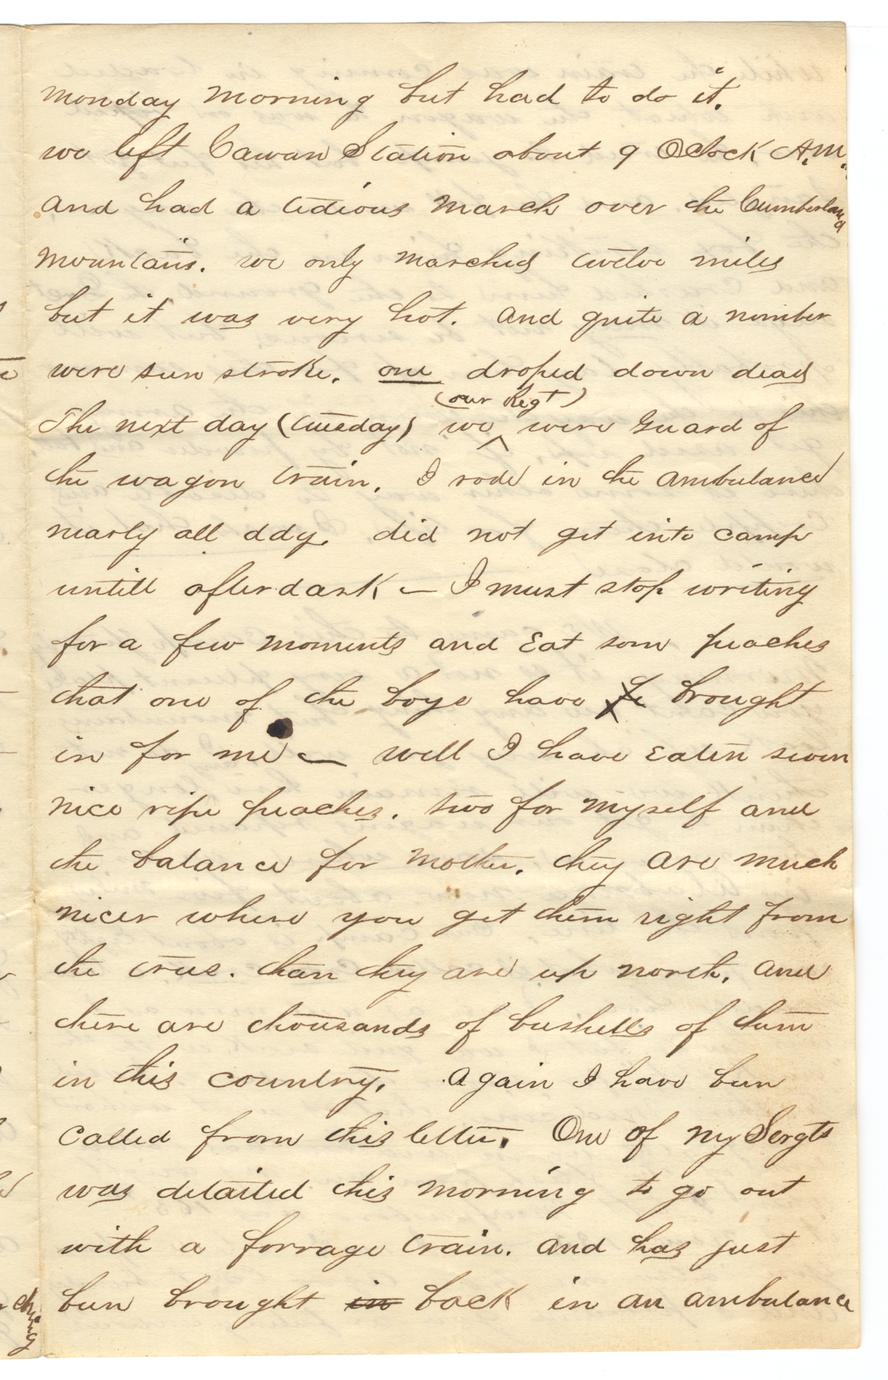 monday morning but had to do it.
we left Cawan Station about 9 Oclock A.M.
and had a tidious march over the Cumberland
mountains. we only marched twelve miles
but it was very hot. and quite a number
were sun stroke. one droped down dead
(our Regt)
The next day (tuesday) we ^ were Guard of
the wagon train. I rode in the ambulance
nearly all ddy. did not get into camp
untill after dark — I must stop writing
for a few moments and Eat som peaches
that one of the boys have brought
in for me — well I have Eaten seven
nice ripe peaches. two for myself and
the balance for mother. they are much
nicer where you get them right from
the tree. than they are up north. and
there are thousands of bushells of them
in this country. Again I have been
called from this letter. One of my Sergts
was detailed this morning to go out
with a forrage train. and has just
been brought in back in an ambulance